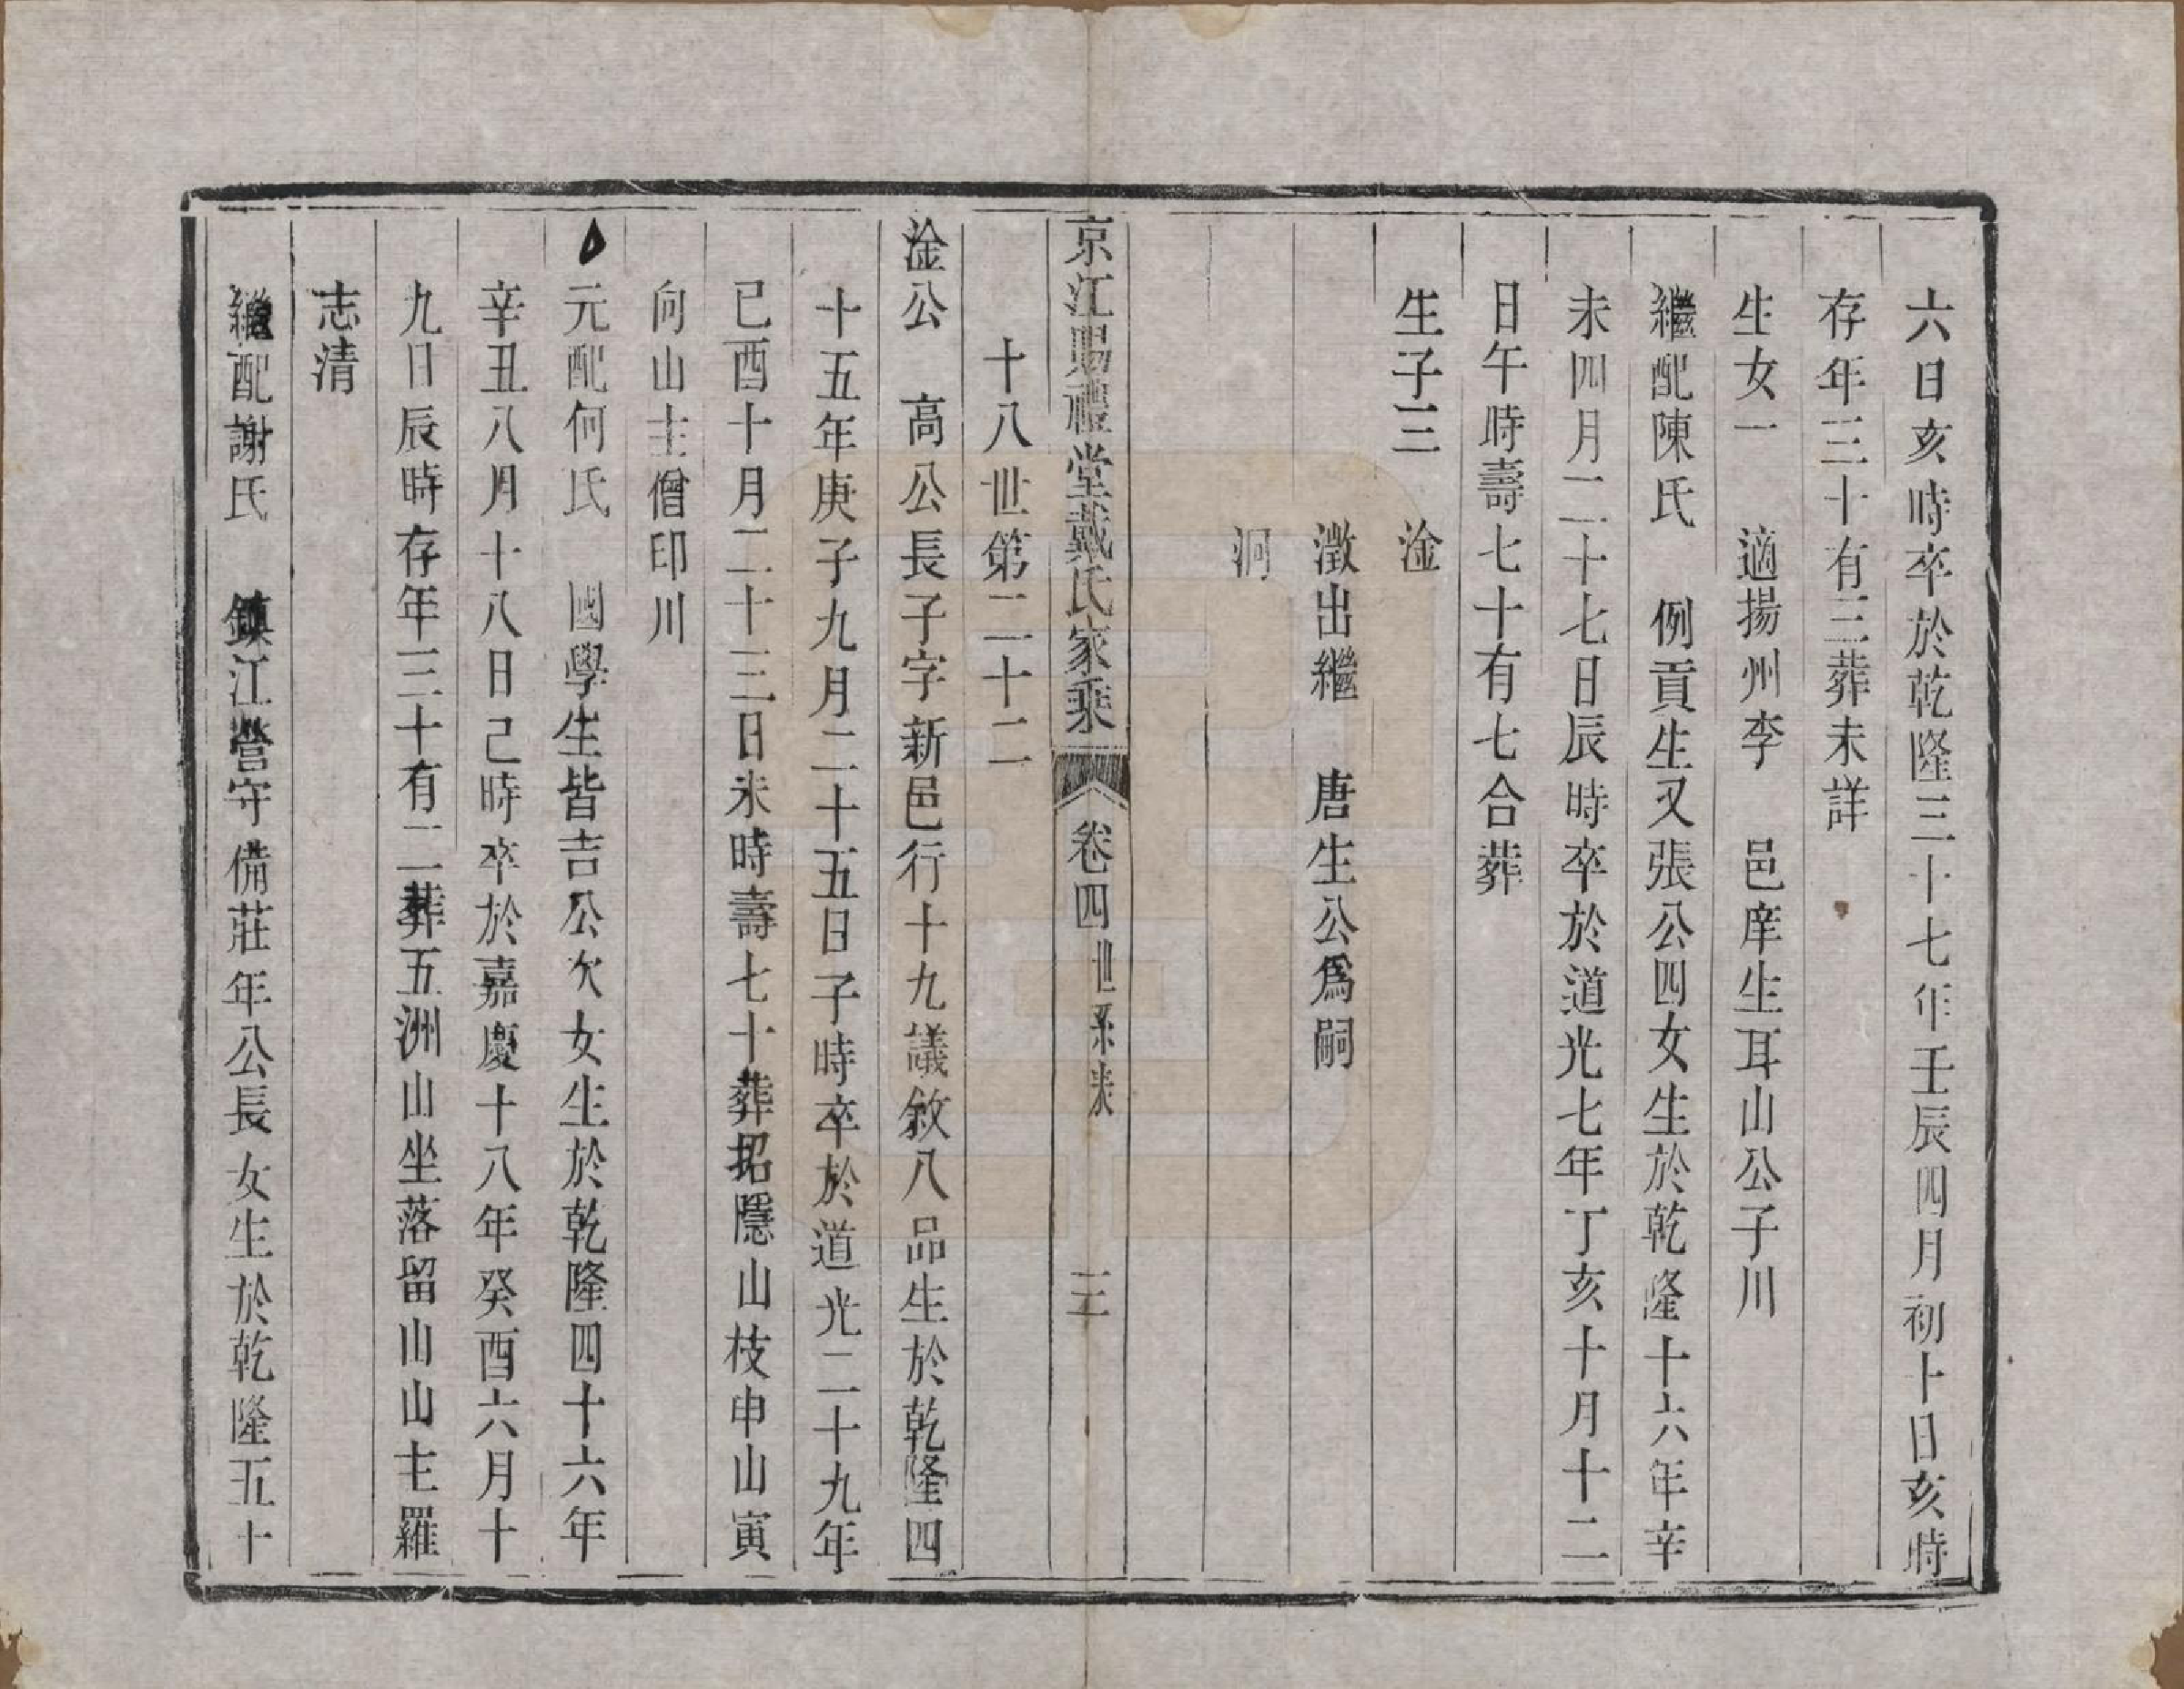 六日亥時卒於乾隆三十七年壬辰四月初十日亥時
存年三十有三葬未詳
生女一 適揚州李 邑庠生耳山公子川
繼配陳氏 例貢生又張公四女生於乾隆十六年辛
未四月二十七日辰時卒於道光七年丁亥十月十二
日午時壽七十有七合葬
生子三 淦
澂出繼 唐生公爲嗣
泂
京江賜禮堂戴氏家乘 卷四 世系表 三
十八世第二十二
淦公 高公長子字新邑行十九議敘八品生於乾隆四
十五年庚子九月二十五日子時卒於道光二十九年
已酉十月二十三日未時壽七十葬招隱山枝申山寅
向山主僧印川
元配何氏 國學生皆吉公次女生於乾隆四十六年
辛丑八月十八日己時卒於嘉慶十八年癸酉六月十
九日辰時存年三十有二葬五洲山坐落留山山主羅
志清
繼配謝氏 鎮江營守備莊年公長女生於乾隆五十